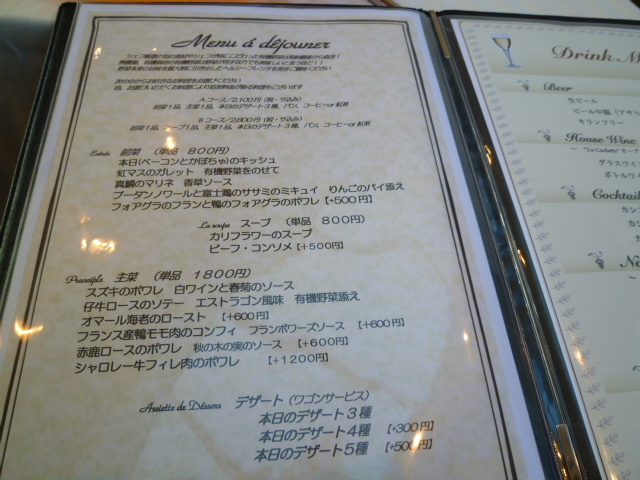 Menu á déjouner
Aコース/2,100円(税・サ込み)
前菜1品、主菜1品、本日のデザート3種、パン、コーヒーor紅茶
Bコース/2,800円(税・サ込み)
前菜1品、スープ1品、主菜1品、本日のデザート3種、パン、コーヒーor紅茶
Entrée 前菜 (単品 800円)
本日(ベーコンとかぼちゃ)のキッシュ
虹マスのガレット 有機野菜をのせて
真鯛のマリネ 香草ソース
ブータンノワールと富士鶏のササミのミキュイ りんごのパイ添え
フォアグラのフランと鴨のフォアグラのポワレ【+500円】
La soupe スープ (単品 800円)
カリフラワーのスープ
ビーフ・コンソメ【+500円】
主菜 (単品 1800円)
スズキのポワレ 白ワインと春菊のソース
仔牛ロースのソテー エストラゴン風味 有機野菜添え
オマール海老のロースト 【+600円】
フランス産鴨モモ肉のコンフィ フランボワーズソース 【+600円】
赤鹿ロースのポワレ 秋の木の実のソース 【+600円】
シャロレー牛フィレ肉のポワレ 【+1200円】
Assiette de Déssers デザート (ワゴンサービス)
本日のデザート3種
本日のデザート4種 【+300円】
本日のデザート5種 【+500円】
Drink M
Beer
生ビール
ビール中瓶(アサヒ
キリンフリー
House Wine
グラスワイ
ボトルワイ
Cocktail
カシ
カシ
No